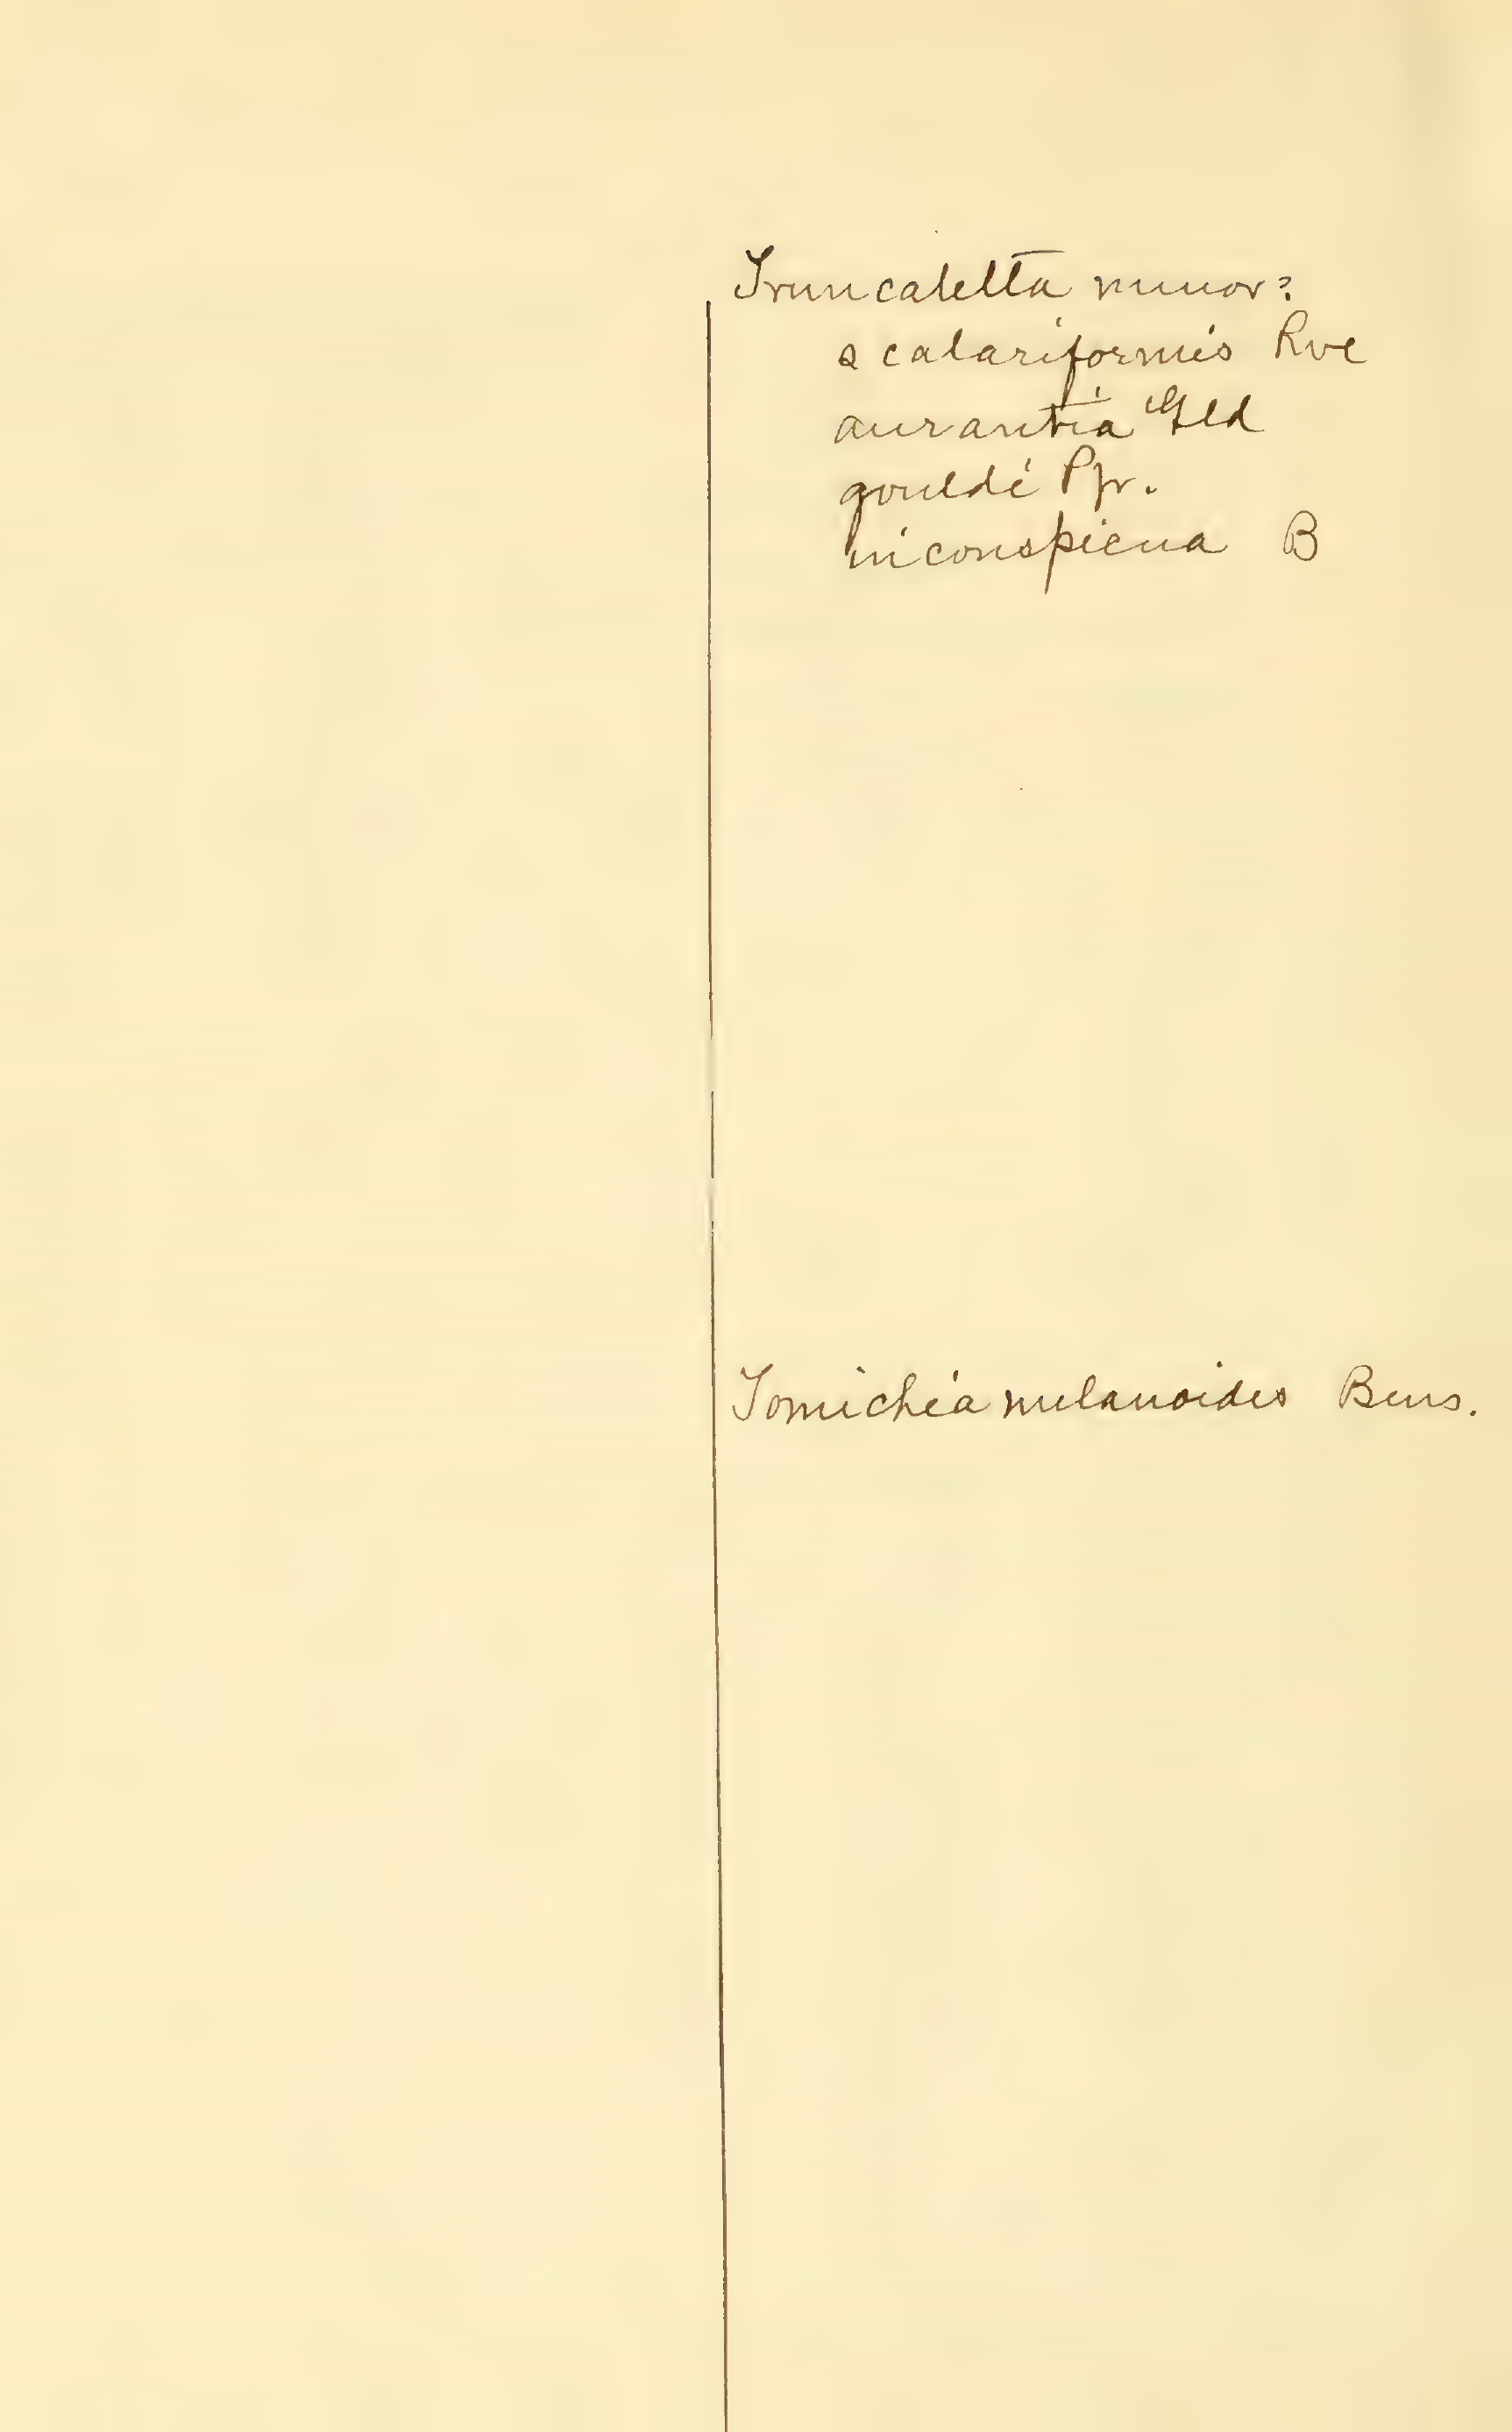 Truncatella minor?
scalariformis Rve
aurantia Gld
gouldi Pfr.
inconspicua B
Tomichia melanoides Bens.